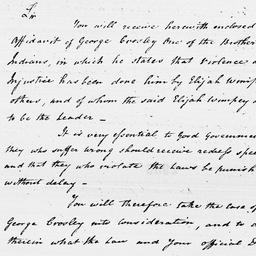 Sir
You will receive herewith enclosed
Affidavit of George Crosley One of the Brother
Indians, in which he states that violence a
Injustice has been done him by Elijah Wimp
others, and of whom the said Elijah Wimpey a
to be the Leader —
It is very essential to Good Governme
they who suffer wrong should receive redress spe
and that they who violate the Laws be punish
without delay —
You will therefore take the case of
George Crosley into consideration, and to d
therein what the Law and your official D